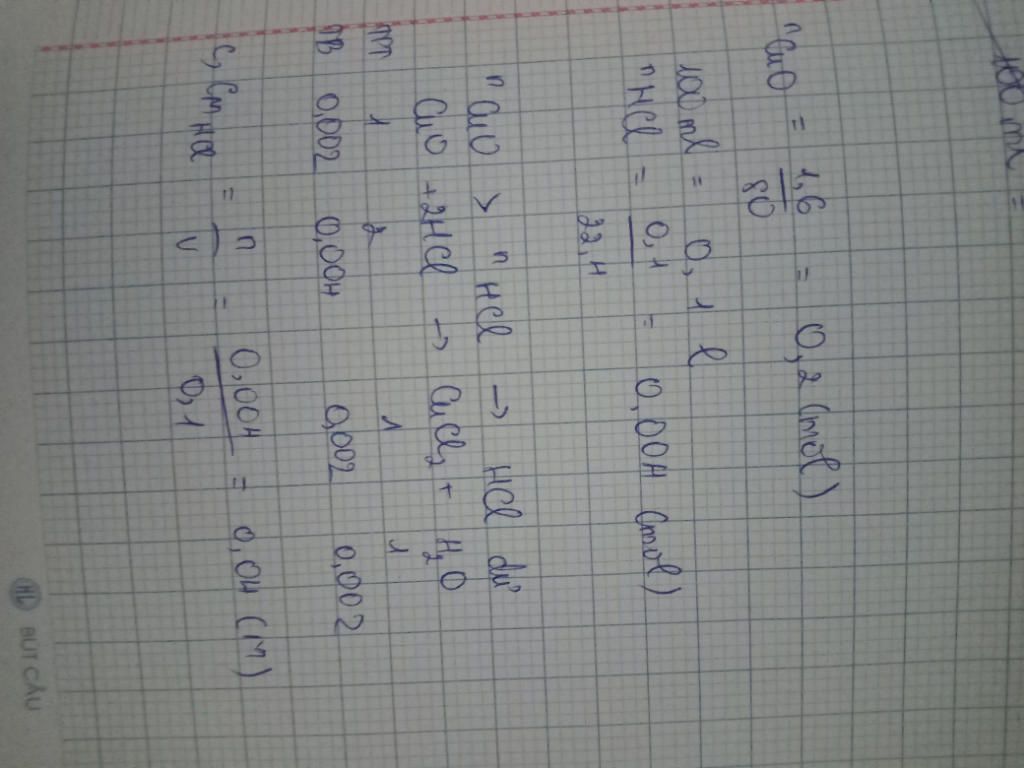 100 ml =
nCuO = 1,6/80 = 0,2 (mol)
100 ml = 0,1 l
nHCl = 0,1/22,4 = 0,004 (mol)
nCuO > nHCl → HCl dư
CuO + 2HCl → CuCl2 + H2O
1 2 1 1
0,002 0,004 0,002 0,002
C, CM HCl = n/V = 0,004/0,1 = 0,04 (M)